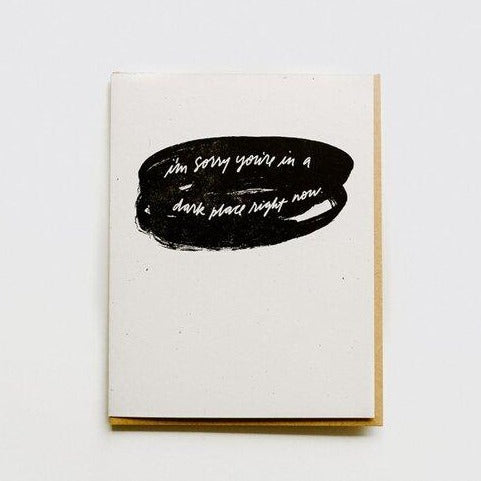 i'm sorry you're in a
dark place right now.